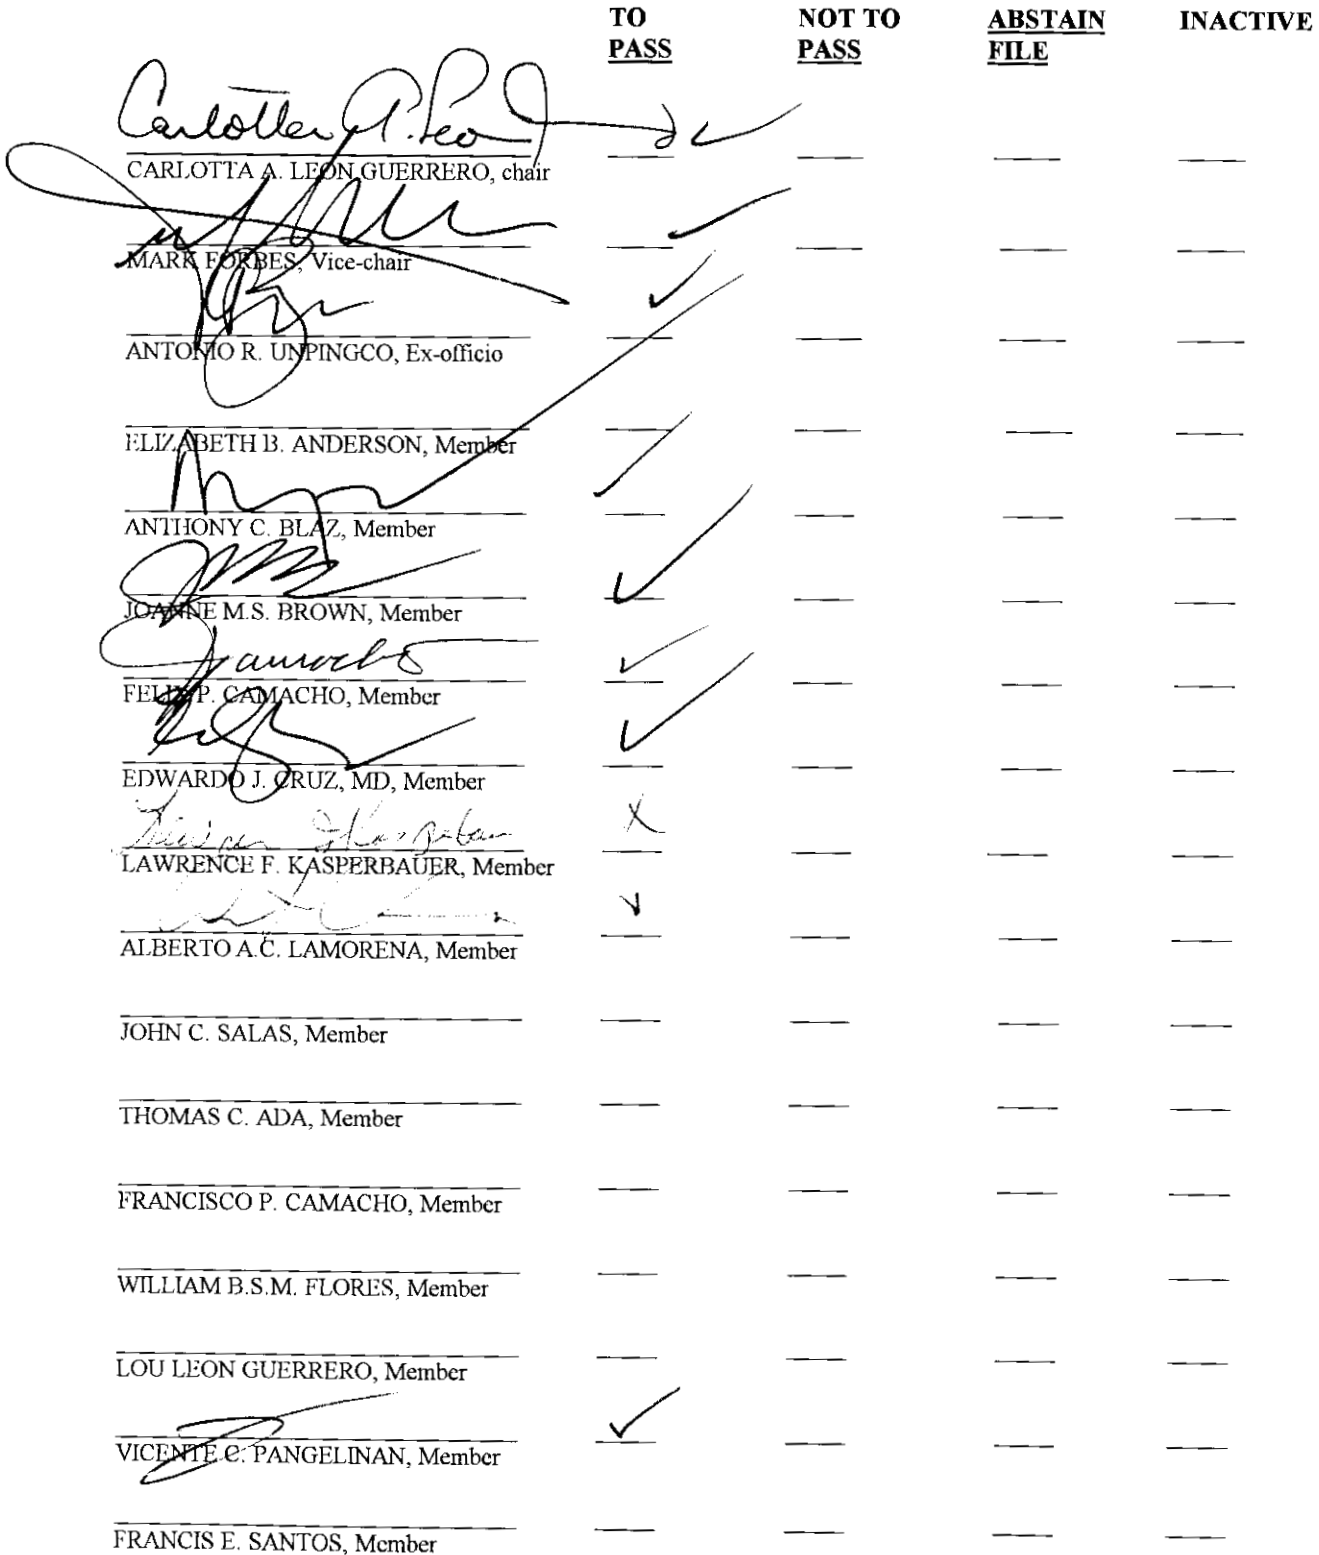 TO NOT TO ABSTAIN INACTIVE
PASS PASS FILE
Carlotta A. Leon
CARLOTTA A. LEON GUERRERO, chair
MARK FORBES, Vice-chair
ANTONIO R. UNPINGCO, Ex-officio
ELIZABETH B. ANDERSON, Member
ANTHONY C. BLAZ, Member
JOANNE M.S. BROWN, Member
Camacho
FELIX P. CAMACHO, Member
EDWARDO J. CRUZ, MD, Member
X
LAWRENCE F. KASPERBAUER, Member
ALBERTO A.C. LAMORENA, Member
JOHN C. SALAS, Member
THOMAS C. ADA, Member
FRANCISCO P. CAMACHO, Member
WILLIAM B.S.M. FLORES, Member
LOU LEON GUERRERO, Member
VICENTE C. PANGELINAN, Member
FRANCIS E. SANTOS, Member